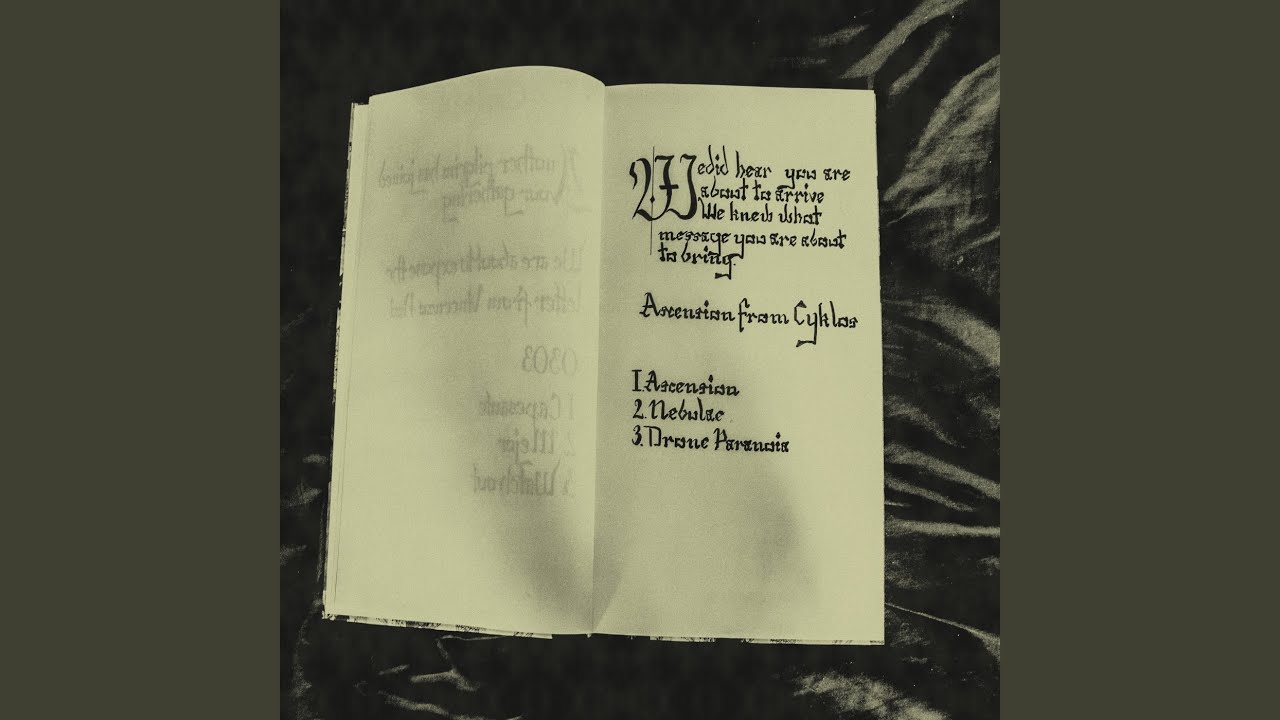 Another pilgrim has joined
our gathering
We are about to expose the
letter from
0303
1
2. Mejor
3. Watch out
We did hear you are
about to arrive
We knew what
message you are about
to bring.
Ascension from Cyklos
1. Ascension
2. Nebulae
3. Drone Paranoia